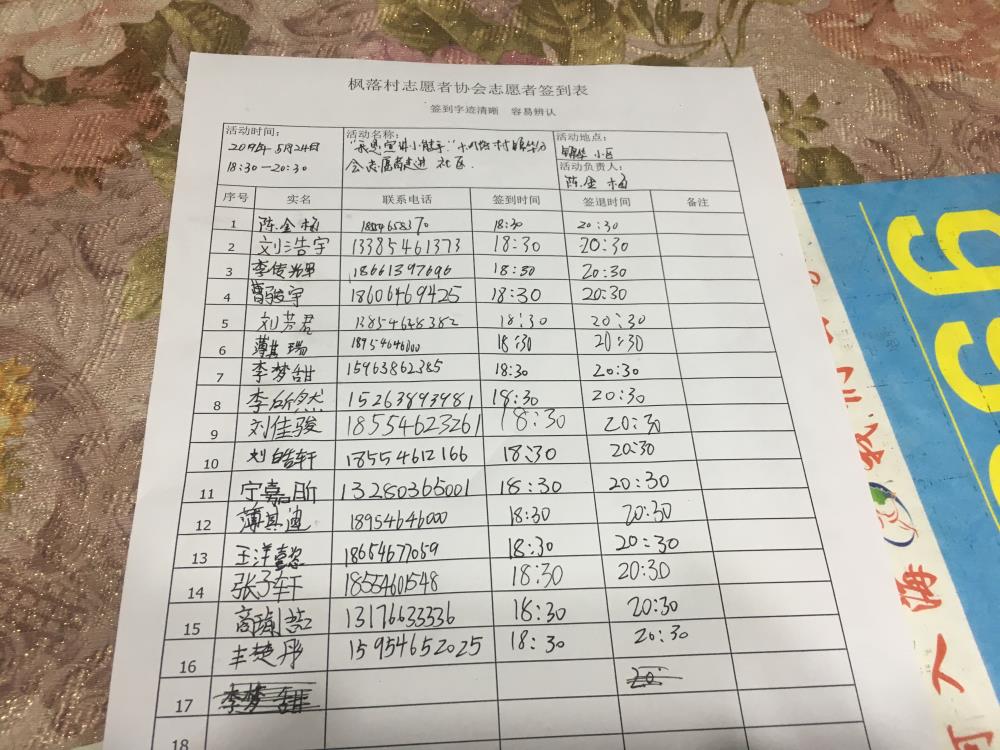 枫落村志愿者协会志愿者签到表
签到字迹清晰 容易辨认
活动时间： 活动名称： 活动地点：
5月24日 锦华小区
18:30—20:30 会志愿者走进 社区.
活动负责人：
陈金
序号 实名 联系电话 签到时间 签退时间 备注
1 陈金 18:30 20:30
2 刘浩宇 13385461373 18:30 20:30
3 李俊 18661397696 18:30 20:30
4 曹骏宇 18606469425 18:30 20:30
5 刘芳君 13854628382 18:30 20:30
6 薄其瑞 18954646000 18:30 20:30
7 李梦甜 15963862385 18:30 20:30
8 李所然 15263893981 18:30 20:30
9 刘佳骏 18554623261 18:30 20:30
10 刘皓轩 18554612166 18:30 20:30
11 宁嘉昕 13280365001 18:30 20:30
12 薄其迪 18954646000 18:30 20:30
13 王洋懿 18654677059 18:30 20:30
14 张子轩 18554601548 18:30 20:30
15 商 13176633336 18:30 20:30
16 丰楚彤 15954652025 18:30 20:30
17 李梦甜 20:
18
99
海
人